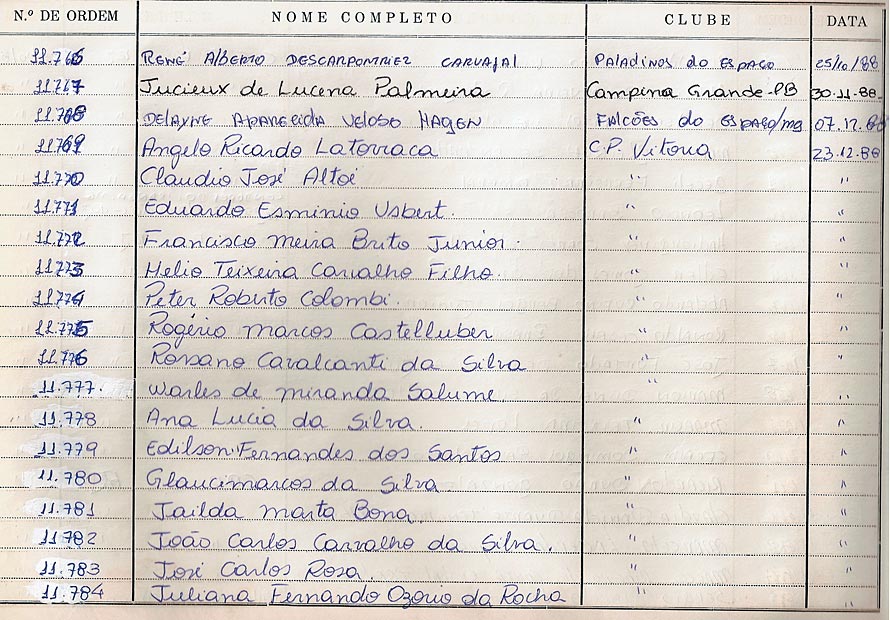 N.º DE ORDEM NOME COMPLETO CLUBE DATA
11.766 RENÉ AlbERTO DESCARPONTRIEZ CARVAJAl PALADINOS do ESPAÇO 25/10/88
11.767 Jucieux de Lucena Palmeira Campina Grande-PB 30.11.88.
11.768 DELAYNE APARECIDA VELOSO HAGEN FALCÕES do ESPAÇO/mg 07.12.88
11.769 Angelo Ricardo Latorraca C.P. Vitoria 23.12.88
11.770 Claudio José Altoé " "
11.771 Eduardo Esminio Usbert. " "
11.772 Francisco Meira Brito Junior. " "
11.773 Helio Teixeira Carvalho Filho. " "
11.774 Peter Roberto Colombi. " "
11.775 Rogério Marcos Castelluber " "
11.776 Rossano Cavalcanti da Silva " "
11.777. Warles de Miranda Salume " "
11.778 Ana Lucia da Silva. " "
11.779 Edilson Fernandes dos Santos " "
11.780 Glaucimarcos da Silva " "
11.781 Jailda Marta Bona " "
11.782 João Carlos Carvalho da Silva. " "
11.783 José Carlos Rosa. " "
11.784 Juliana Fernando Ozorio da Rocha " "